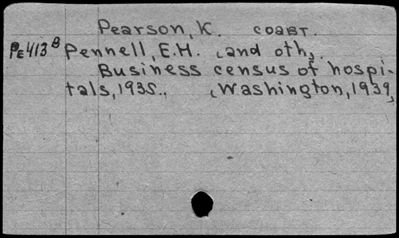 Pearson, K. COABT.
PE413B Pennell, E.H. and oth,
Business census of hospi-
tals, 1935.. (Washington, 1939,